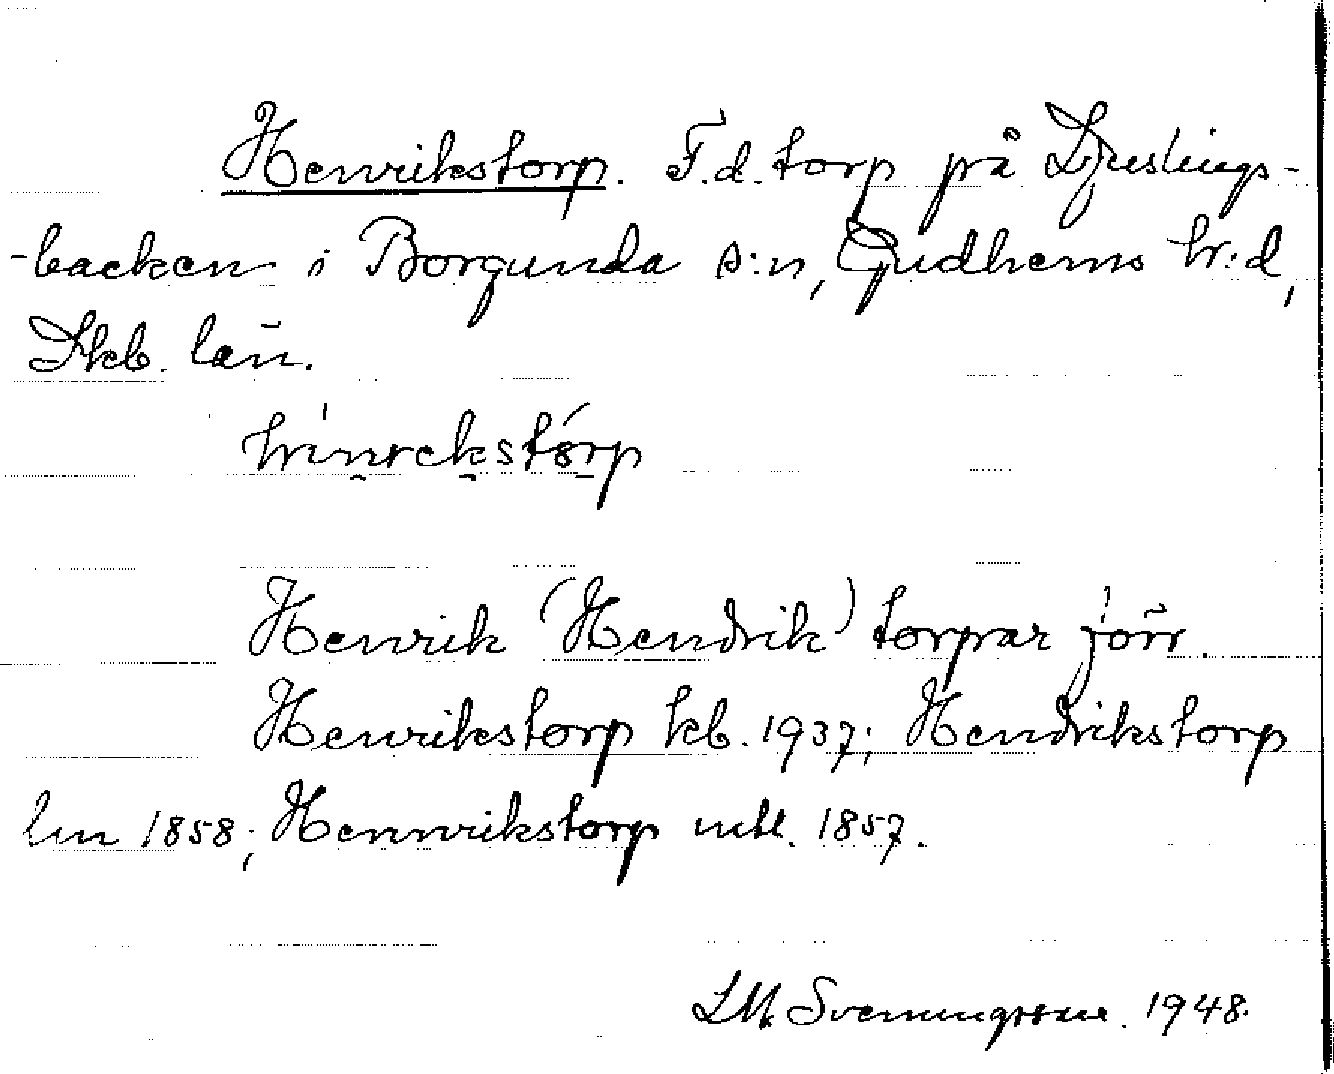 Henrikstorp. F.d. torp på Djuslings-
-backen i Borgunda s:n, Gudhems hr:d,
Skb. län.
hìnrekstórp
Henrik (Hendrik) torpar förr.
Henrikstorp kb. 1937; Hendrikstorp
lm 1858; Hennrikstorp mtl. 1857.
LM. Svenungsson. 1948.